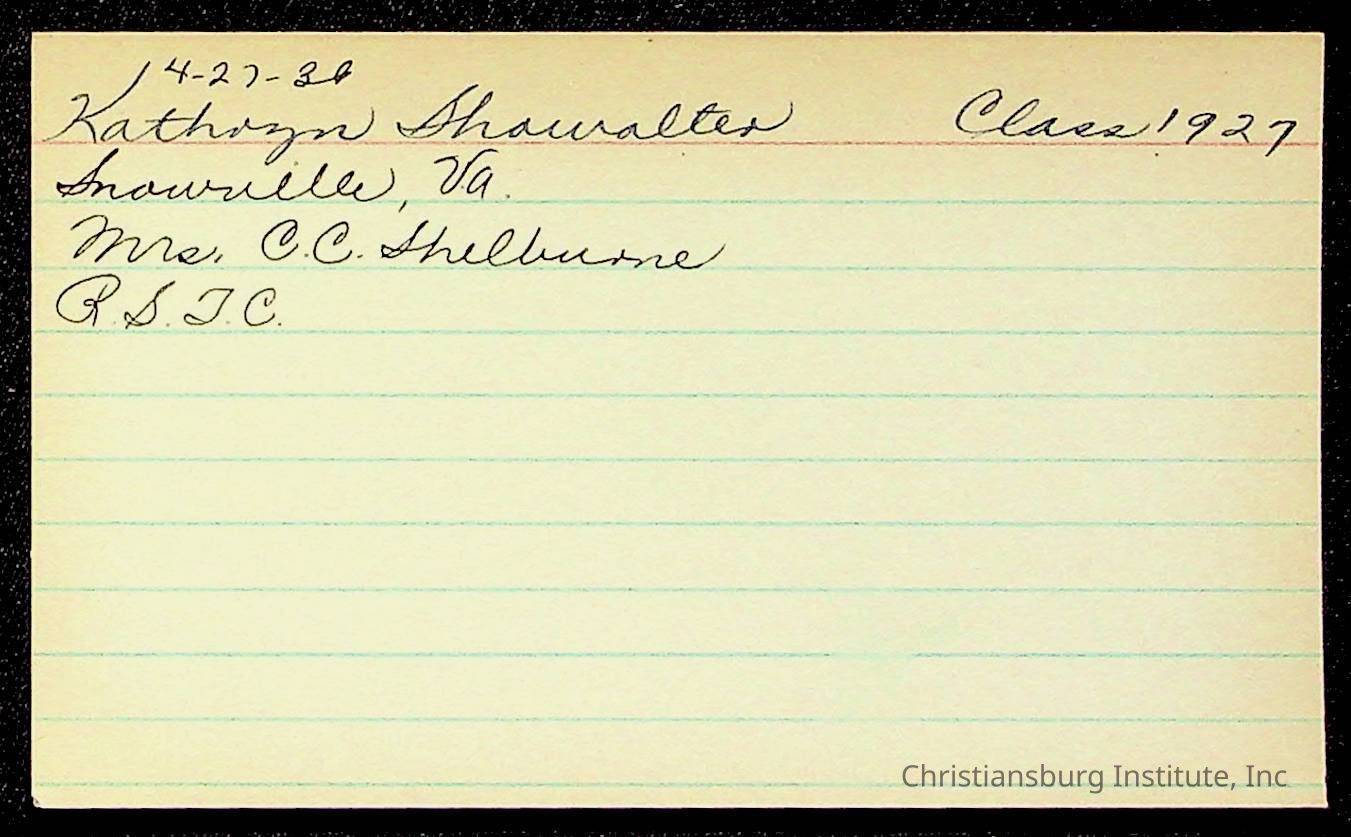 4-27-38
Kathryn Showalter Class 1927
Snowville, Va.
Mrs. C.C. Shelburne
R.S.T.C.
Christiansburg Institute, Inc